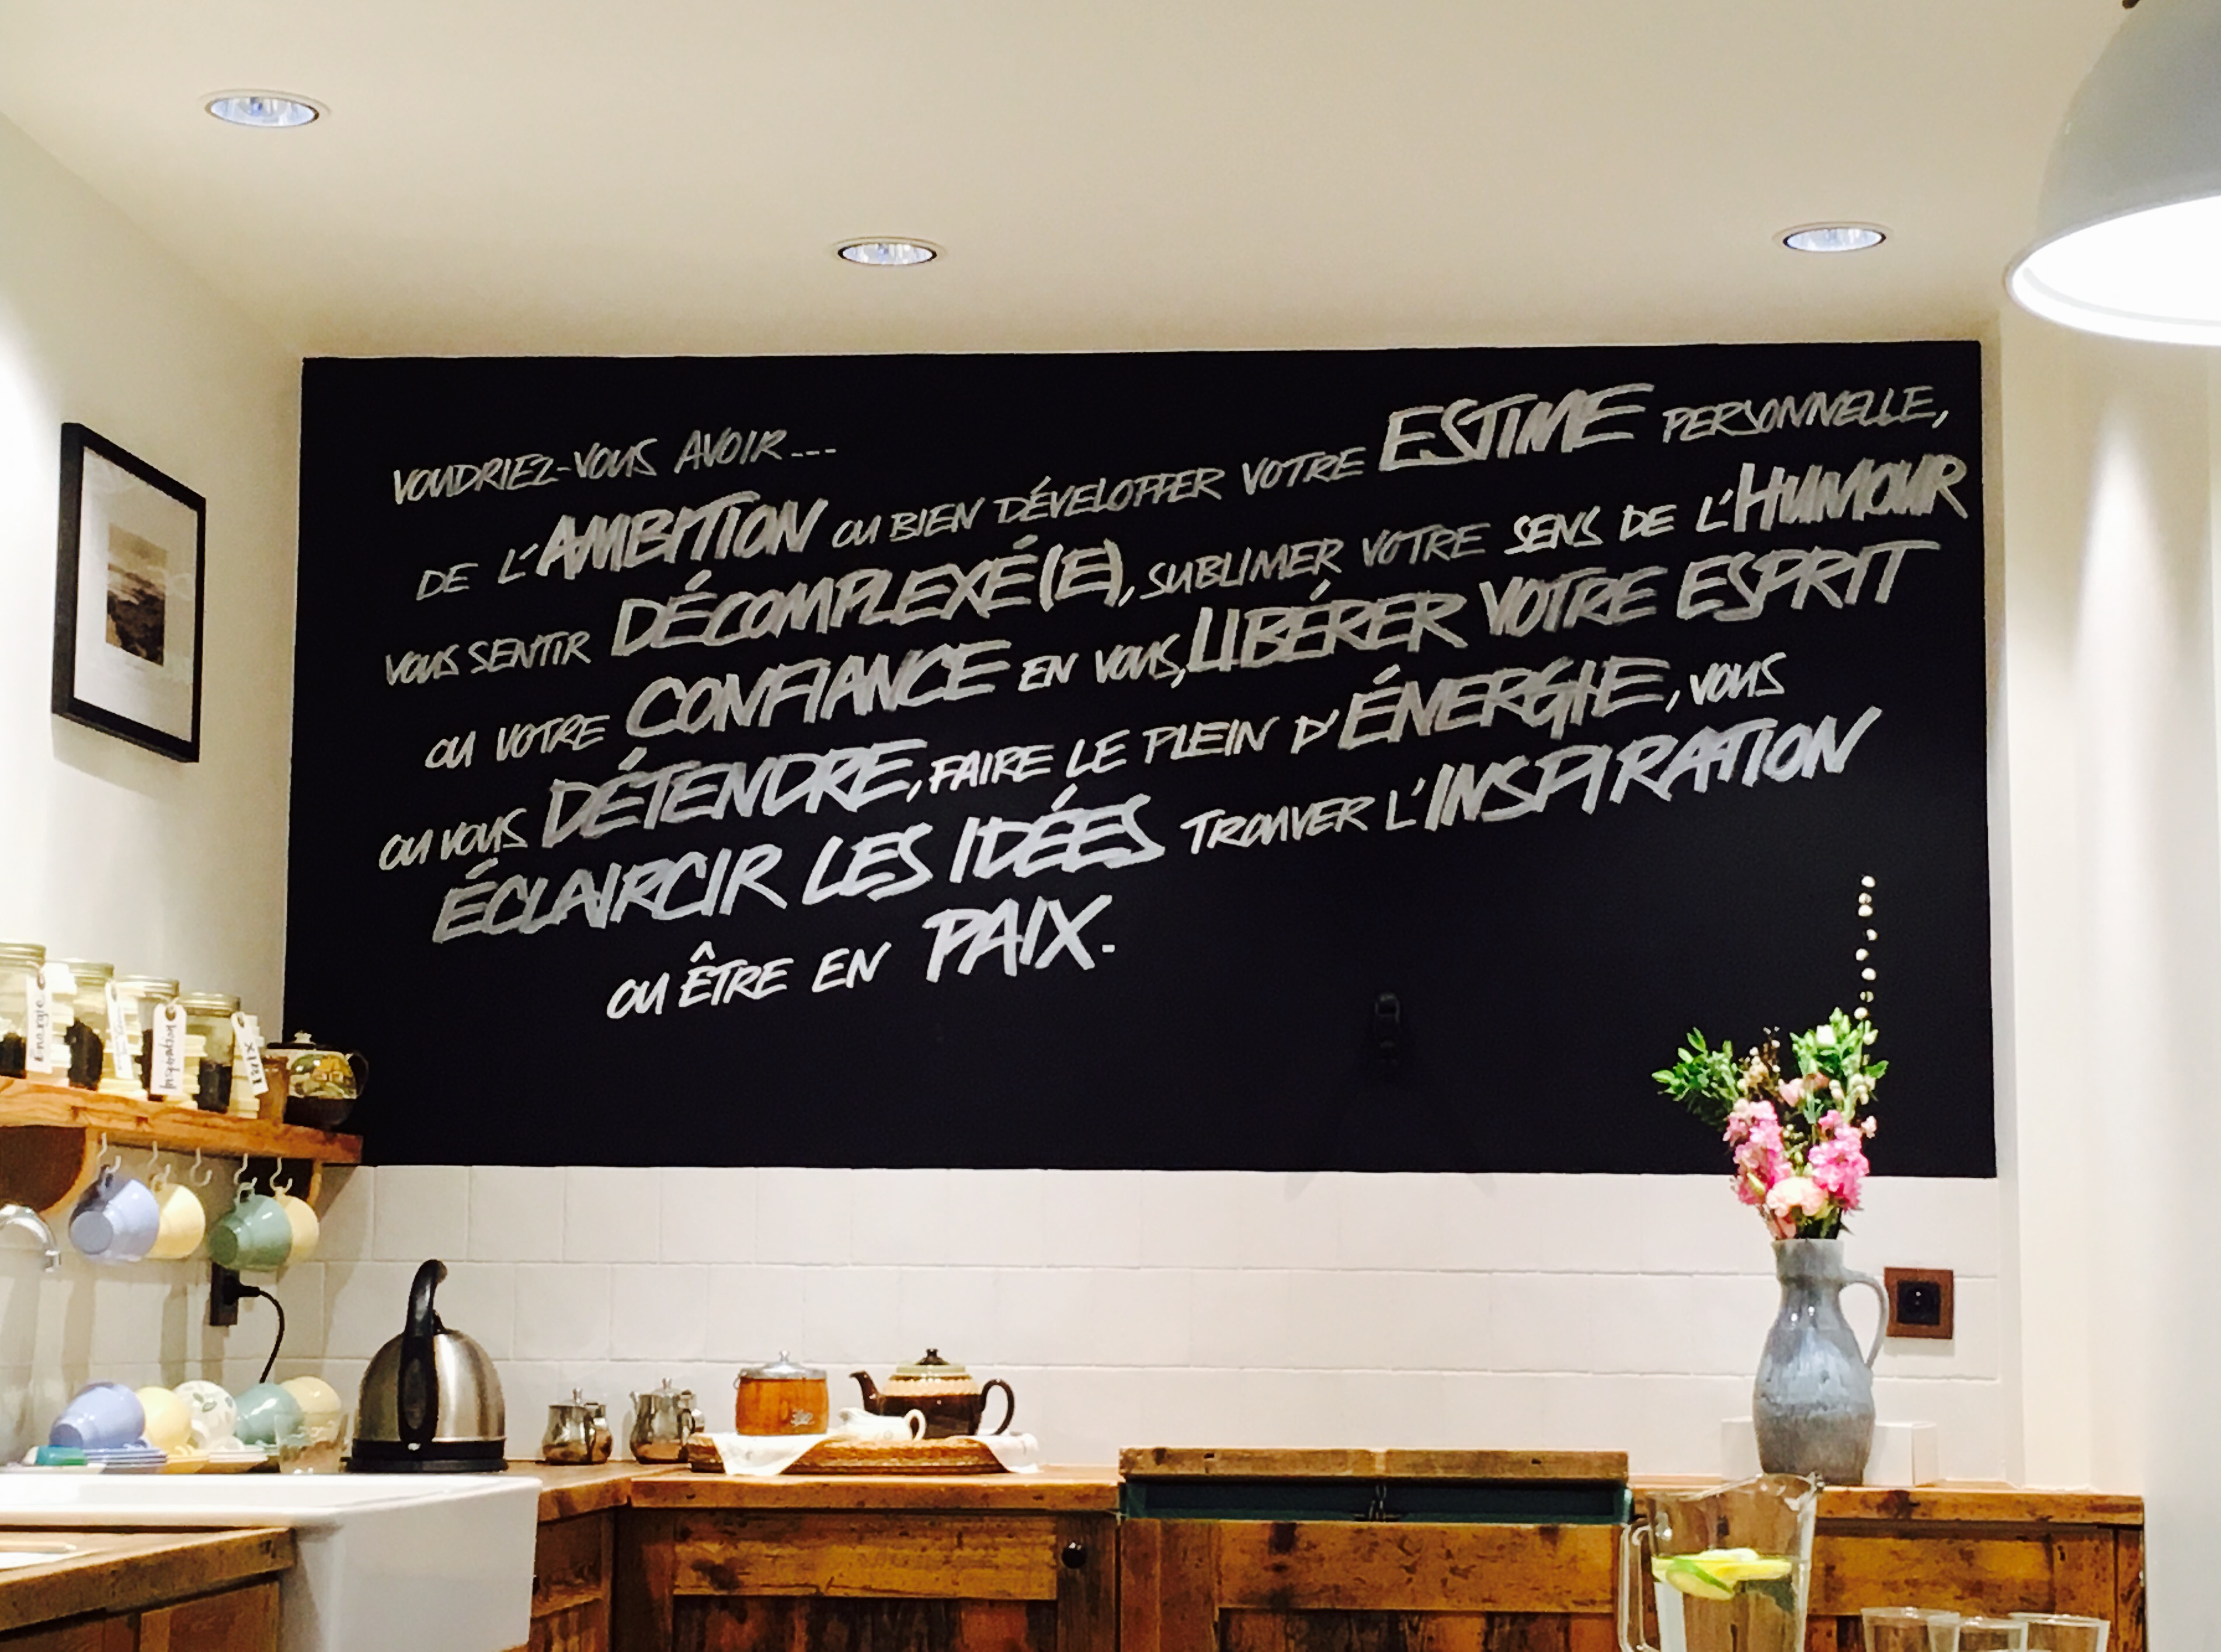 VOUDRIEZ-VOUS AVOIR...
DE L'AMBITION OU BIEN DÉVELOPPER VOTRE ESTIME PERSONNELLE,
VOUS SENTIR DÉCOMPLEXÉ(E), SUBLIMER VOTRE SENS DE L'HUMOUR
OU VOTRE CONFIANCE EN VOUS, LIBÉRER VOTRE ESPRIT
OU VOUS DÉTENDRE, FAIRE LE PLEIN D'ÉNERGIE, VOUS
ÉCLAIRCIR LES IDÉES TROUVER L'INSPIRATION
OU ÊTRE EN PAIX.
Énergie
Inspiration
PAIX